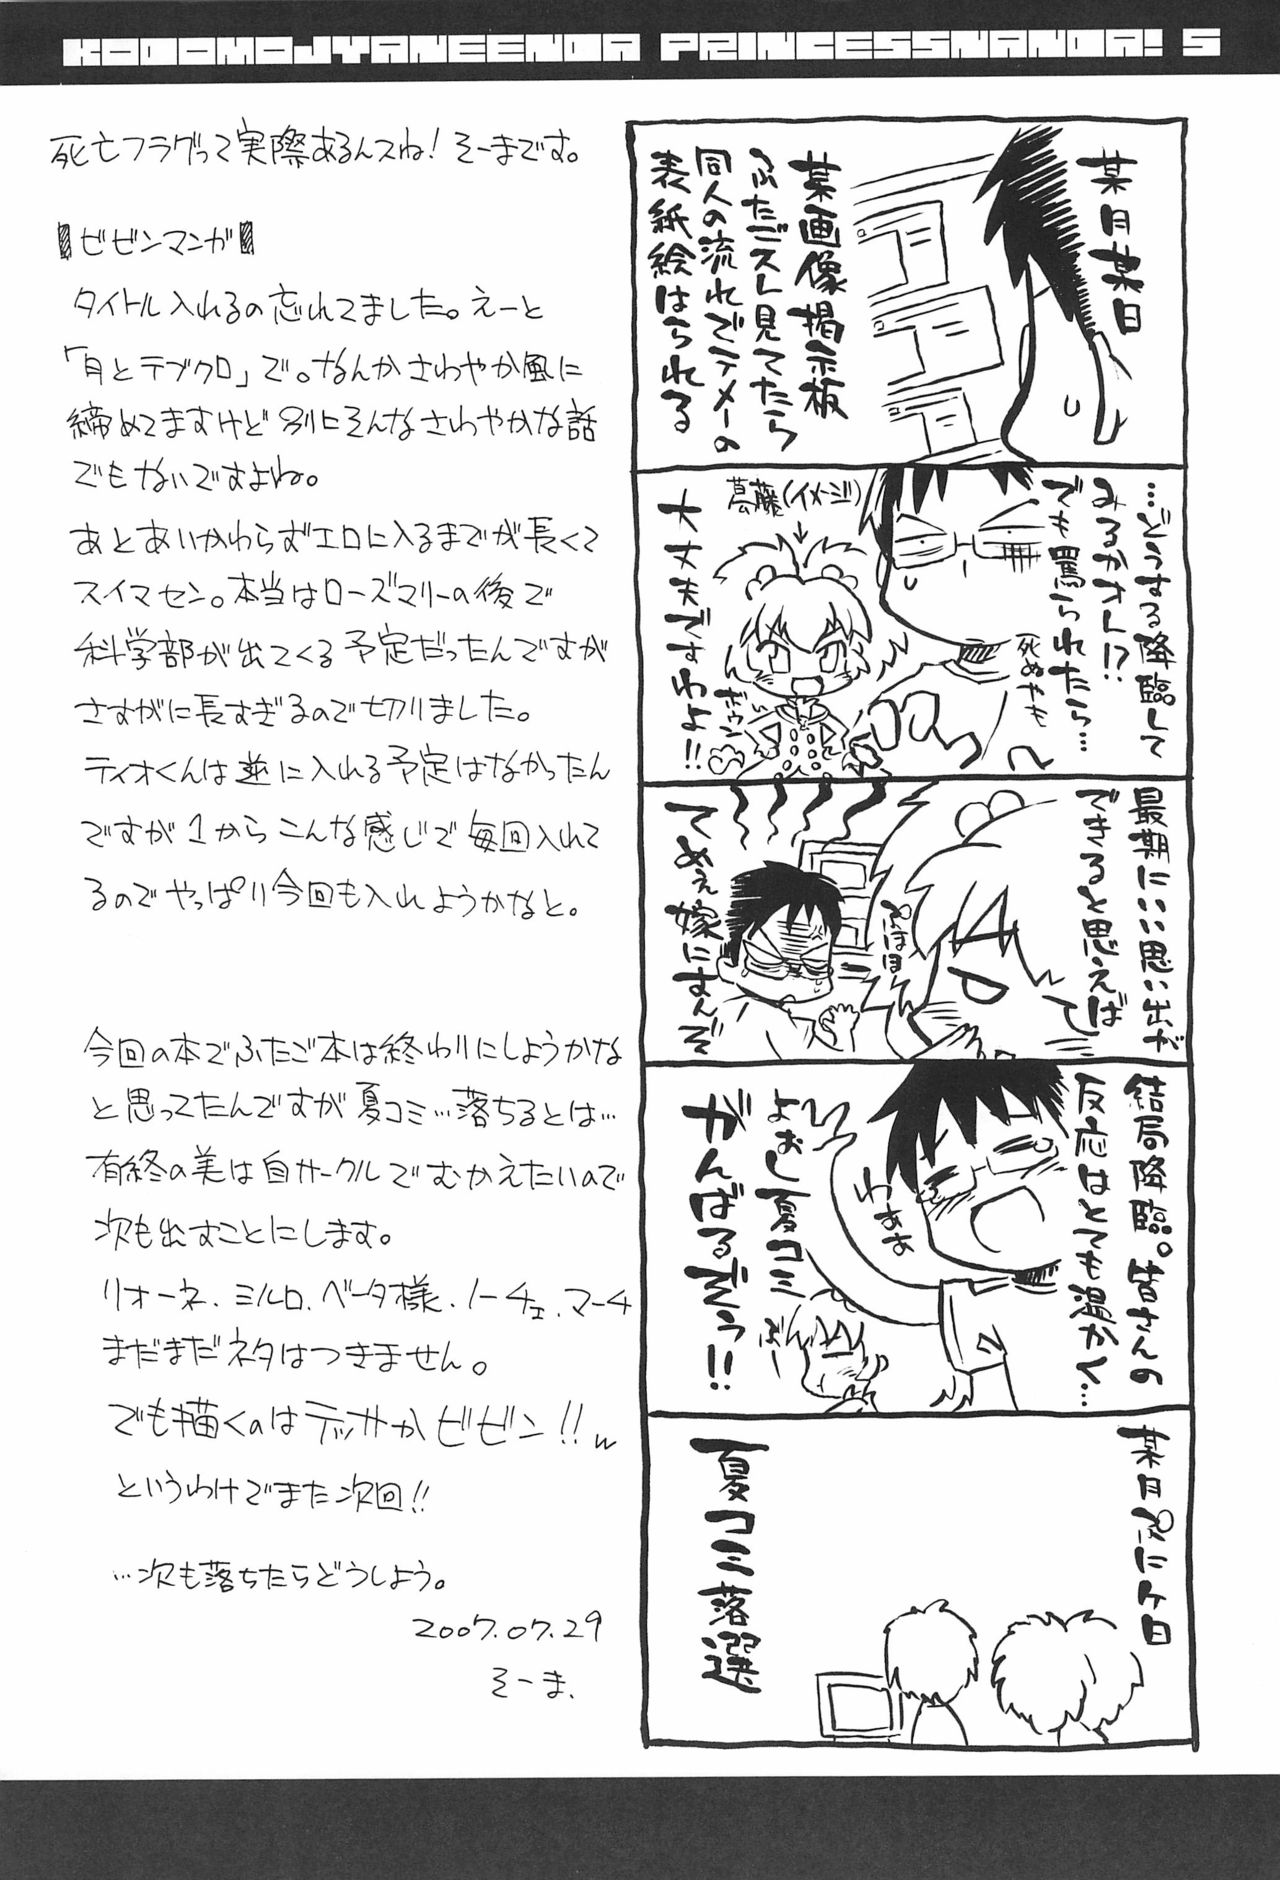 KODOMOJYANEENDA PRINCESSNANDA! 5
死亡フラグって実際あるんスね! そーまです。
ビゼンマンガ
タイトル入れるの忘れてました。えーと
「月とテブクロ」で。なんかさわやか風に
締めてますけど別にそんなさわやかな話
でもないですよね。
あとあいかわらずエロに入るまでが長くて
スイマセン。本当はローズマリーの後で
科学部が出てくる予定だったんですが
さすがに長すぎるので切りました。
ティオくんは並に入れる予定はなかったん
ですが1からこんな感じで毎回入れて
るのでやっぱり今回も入れようかなと。
今回の本でふたご本は終わりにしようかな
と思ってたんですが夏コミ…落ちるとは…
有終の美は自サークルでむかえたいので
次も出すことにします。
リオーネ、ミルロ、ベータ様、ノーチェ、マーチ
まだまだネタはつきません。
でも描くのはデッサかビゼン!!w
というわけでまた次回!!
…次も落ちたらどうしよう。
2007.07.29
そーま、
某月某日
某画像掲示板
ふたごスレ見てたら
同人の流れでテメーの
表紙絵はられてる
…どうする降臨して
みるかオレ!?
でも罵られたら…
死ぬやも
葛藤(イメージ)
大丈夫ですわよ!!
ボゥン
最期にいい思い出が
できると思えば
ぷほほ
てめぇ嫁にすんぞ
結局降臨。皆さんの
反応はとても温かく…
わぁぁ
よぉし夏コミ
がんばるぞう!!
某月ぷにケ日
夏コミ落選